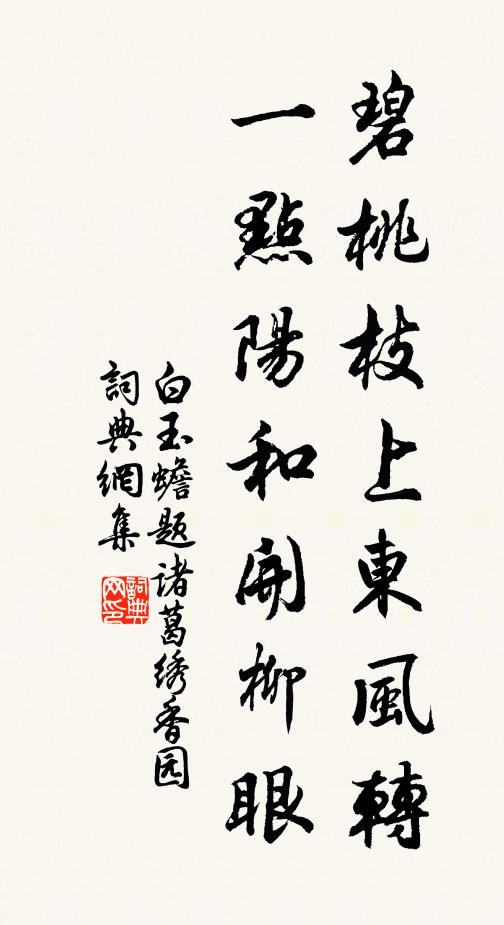 碧桃枝上東風轉
一點陽和開柳眼
白玉蟾题诸葛绣香园
詞典網集
詞典網印